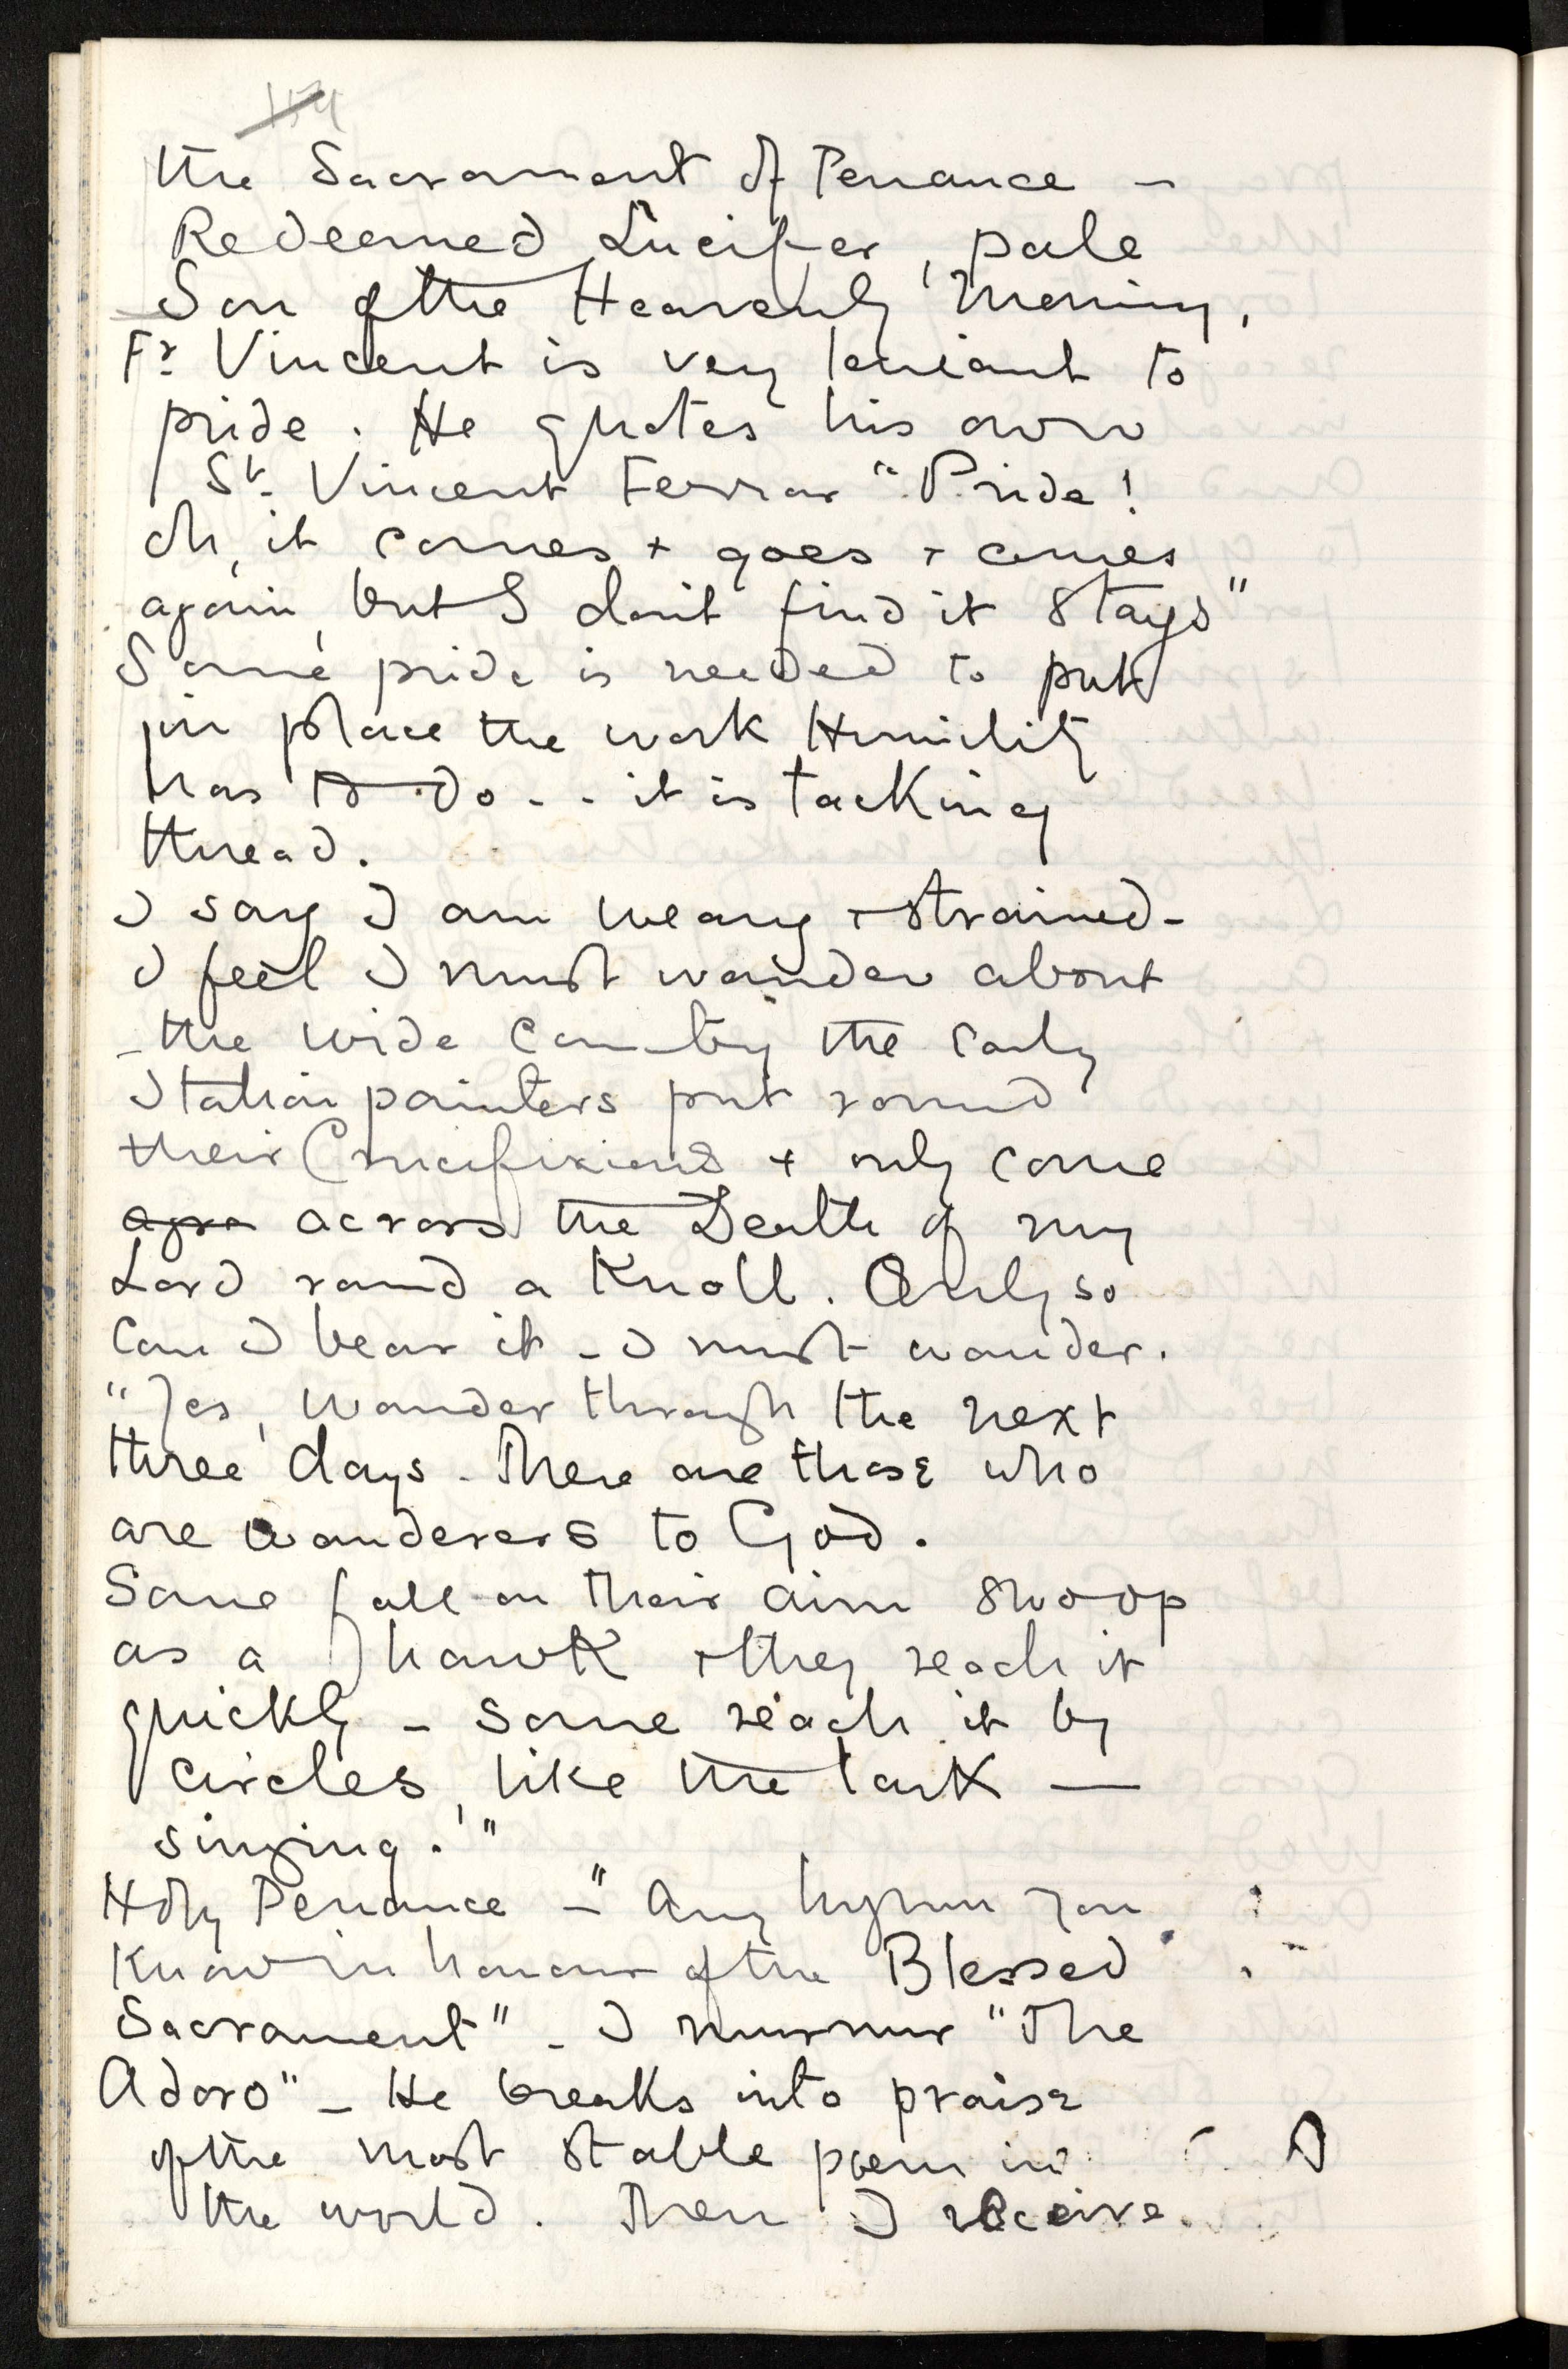 the Sacrament of Penance –
Redeemed Lucifer, pale
Son of the Heavenly Morning,
Fr Vincent is very lenient to
pride. He quotes his own
St. Vincent Ferrar "Pride!
oh, it comes + goes + comes
again, but I don't find it stays"
Some pride is needed to put
in place the work Humility
has to do - - it is tacking
thread.
I say I am weary + strained -
I feel I must wander about
the wide country the early
Italian painters put round
their Crucifixions + only come
agro across the Death of my
Lord round a Knoll. Only so
can I bear it - I must wander.
"Yes, wander through the next
three days. There are those who
are wanderers to God.
Some fall on their aim swoop
as a hawk + they reach it
quickly - some reach it by
circles, like the lark —
singing."
Holy Penance - "Any hymn you
Know in honour of the Blessed
Sacrament" - I murmur "The
Adoro" - He breaks into praise
of the most stable poem in
the world. Then I receive